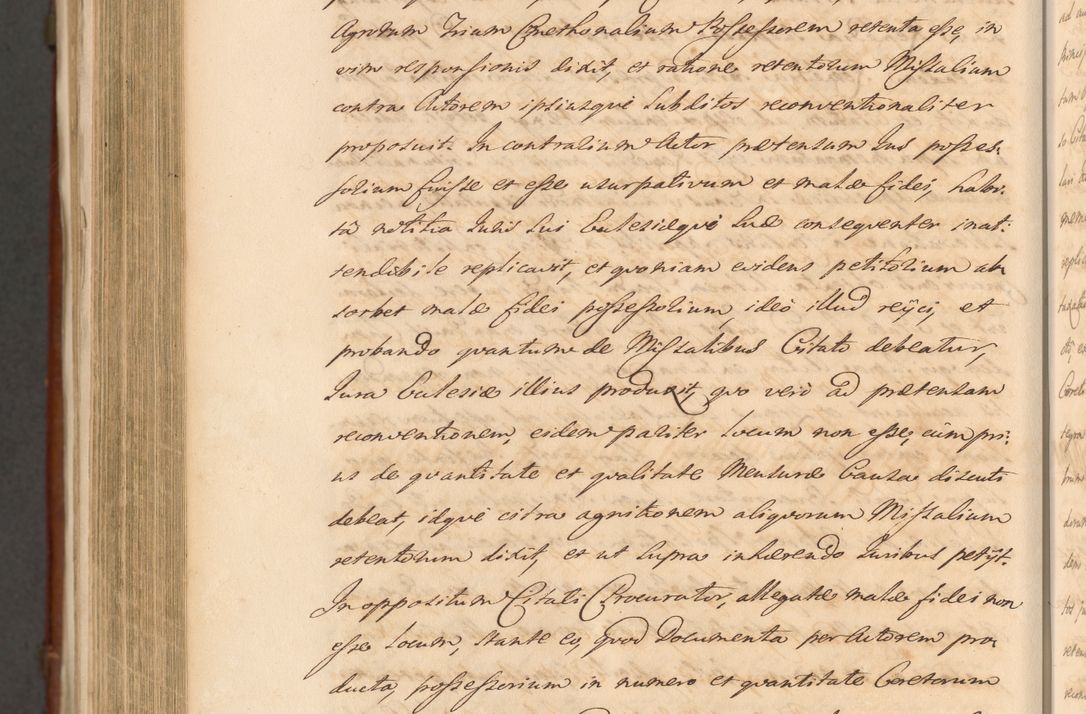 Agrorum Trium Cmethonalium Possessorem retenta esse, in
vim responsionis dixit, et ratione retentorum Missalium
contra Actorem ipsiusque Subditos reconventionaliter
proposuit. In contrarium Actor prætensum Jus posses-
sorium fuisse et esse usurpativum et malæ fidei, habi-
tâ notitia Juris sui Ecclesiæque suæ consequenter inat-
tendibile replicavit, et quoniam evidens petitorium ab
sorbet malæ fidei possessorium, ideò illud reijci, et
probando quantum de Missalibus Citato debeatur,
Jura Ecclesiæ illius produxit, quo verò ad prætensam
reconventionem, eidem pariter locum non esse, cùm pri-
us de quantitate et qualitate Mensuræ Causa discuti
debeat, idque citra agnitionem aliquorum Missalium
retentorum dixit, et ut supra inhærendo Juribus petijt.
In oppositum Citati Procurator, allegatæ malæ fidei non
esse locum, stante eo, quod Documenta per Actorem pro
ducta, possessorium in numero et quantitate Coretorum